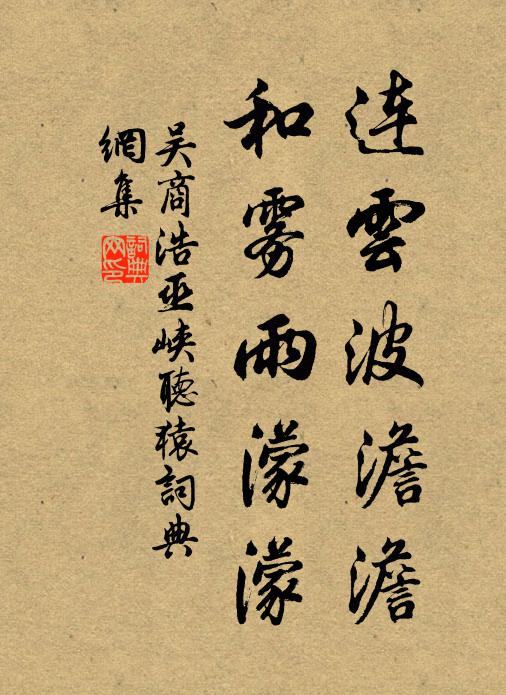 连雲波澹澹
和雾雨濛濛
吴商浩巫峡聽猿詞典
網集
詞典网印